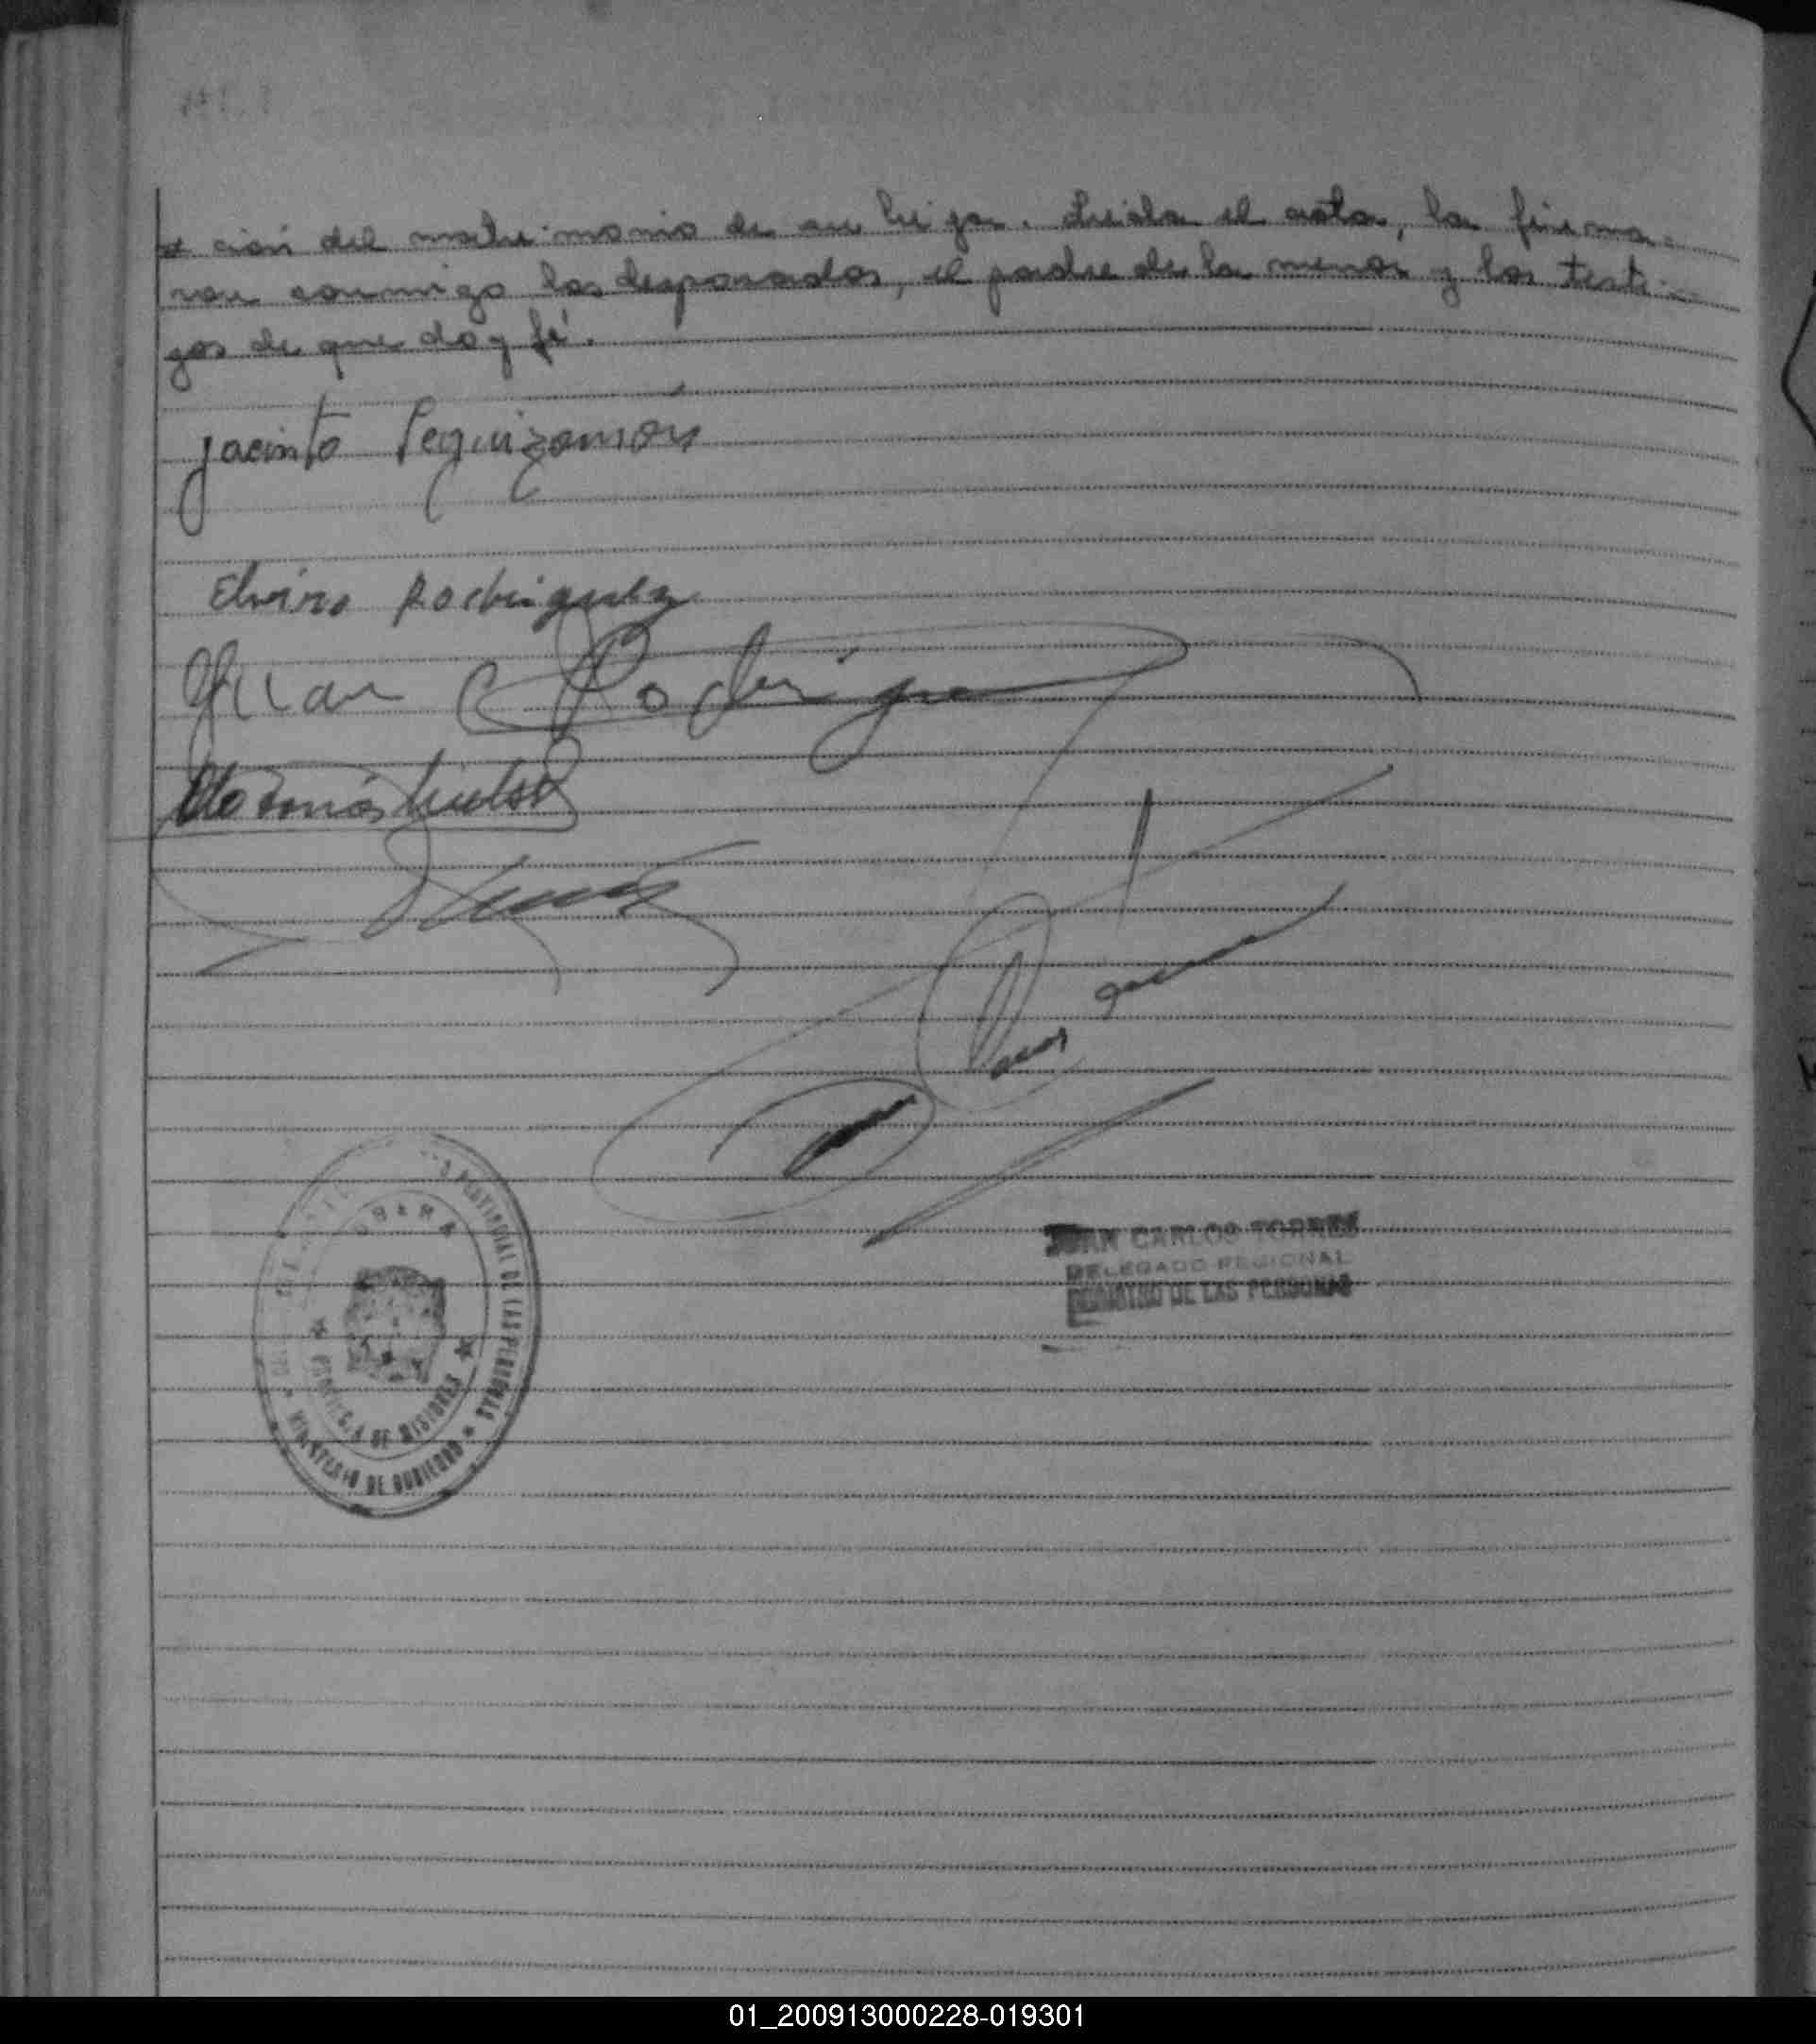 ción del matrimonio de su hija. Leída el acta, la firma=
ron conmigo los desposados, el padre de la menor y los testi=
gos de que doy fé.
Jacinto Leguizamón
Elvira Rodriguez
Juan Rodrigue
JUAN CARLOS TORRES
DELEGADO REGIONAL
REGISTRO DE LAS PERSONAS
PROVINCIAL DE LAS PERSONAS
OBERA
PROVINCIA DE MISIONES
MINISTERIO DE GOBIERNO
01_200913000228-019301